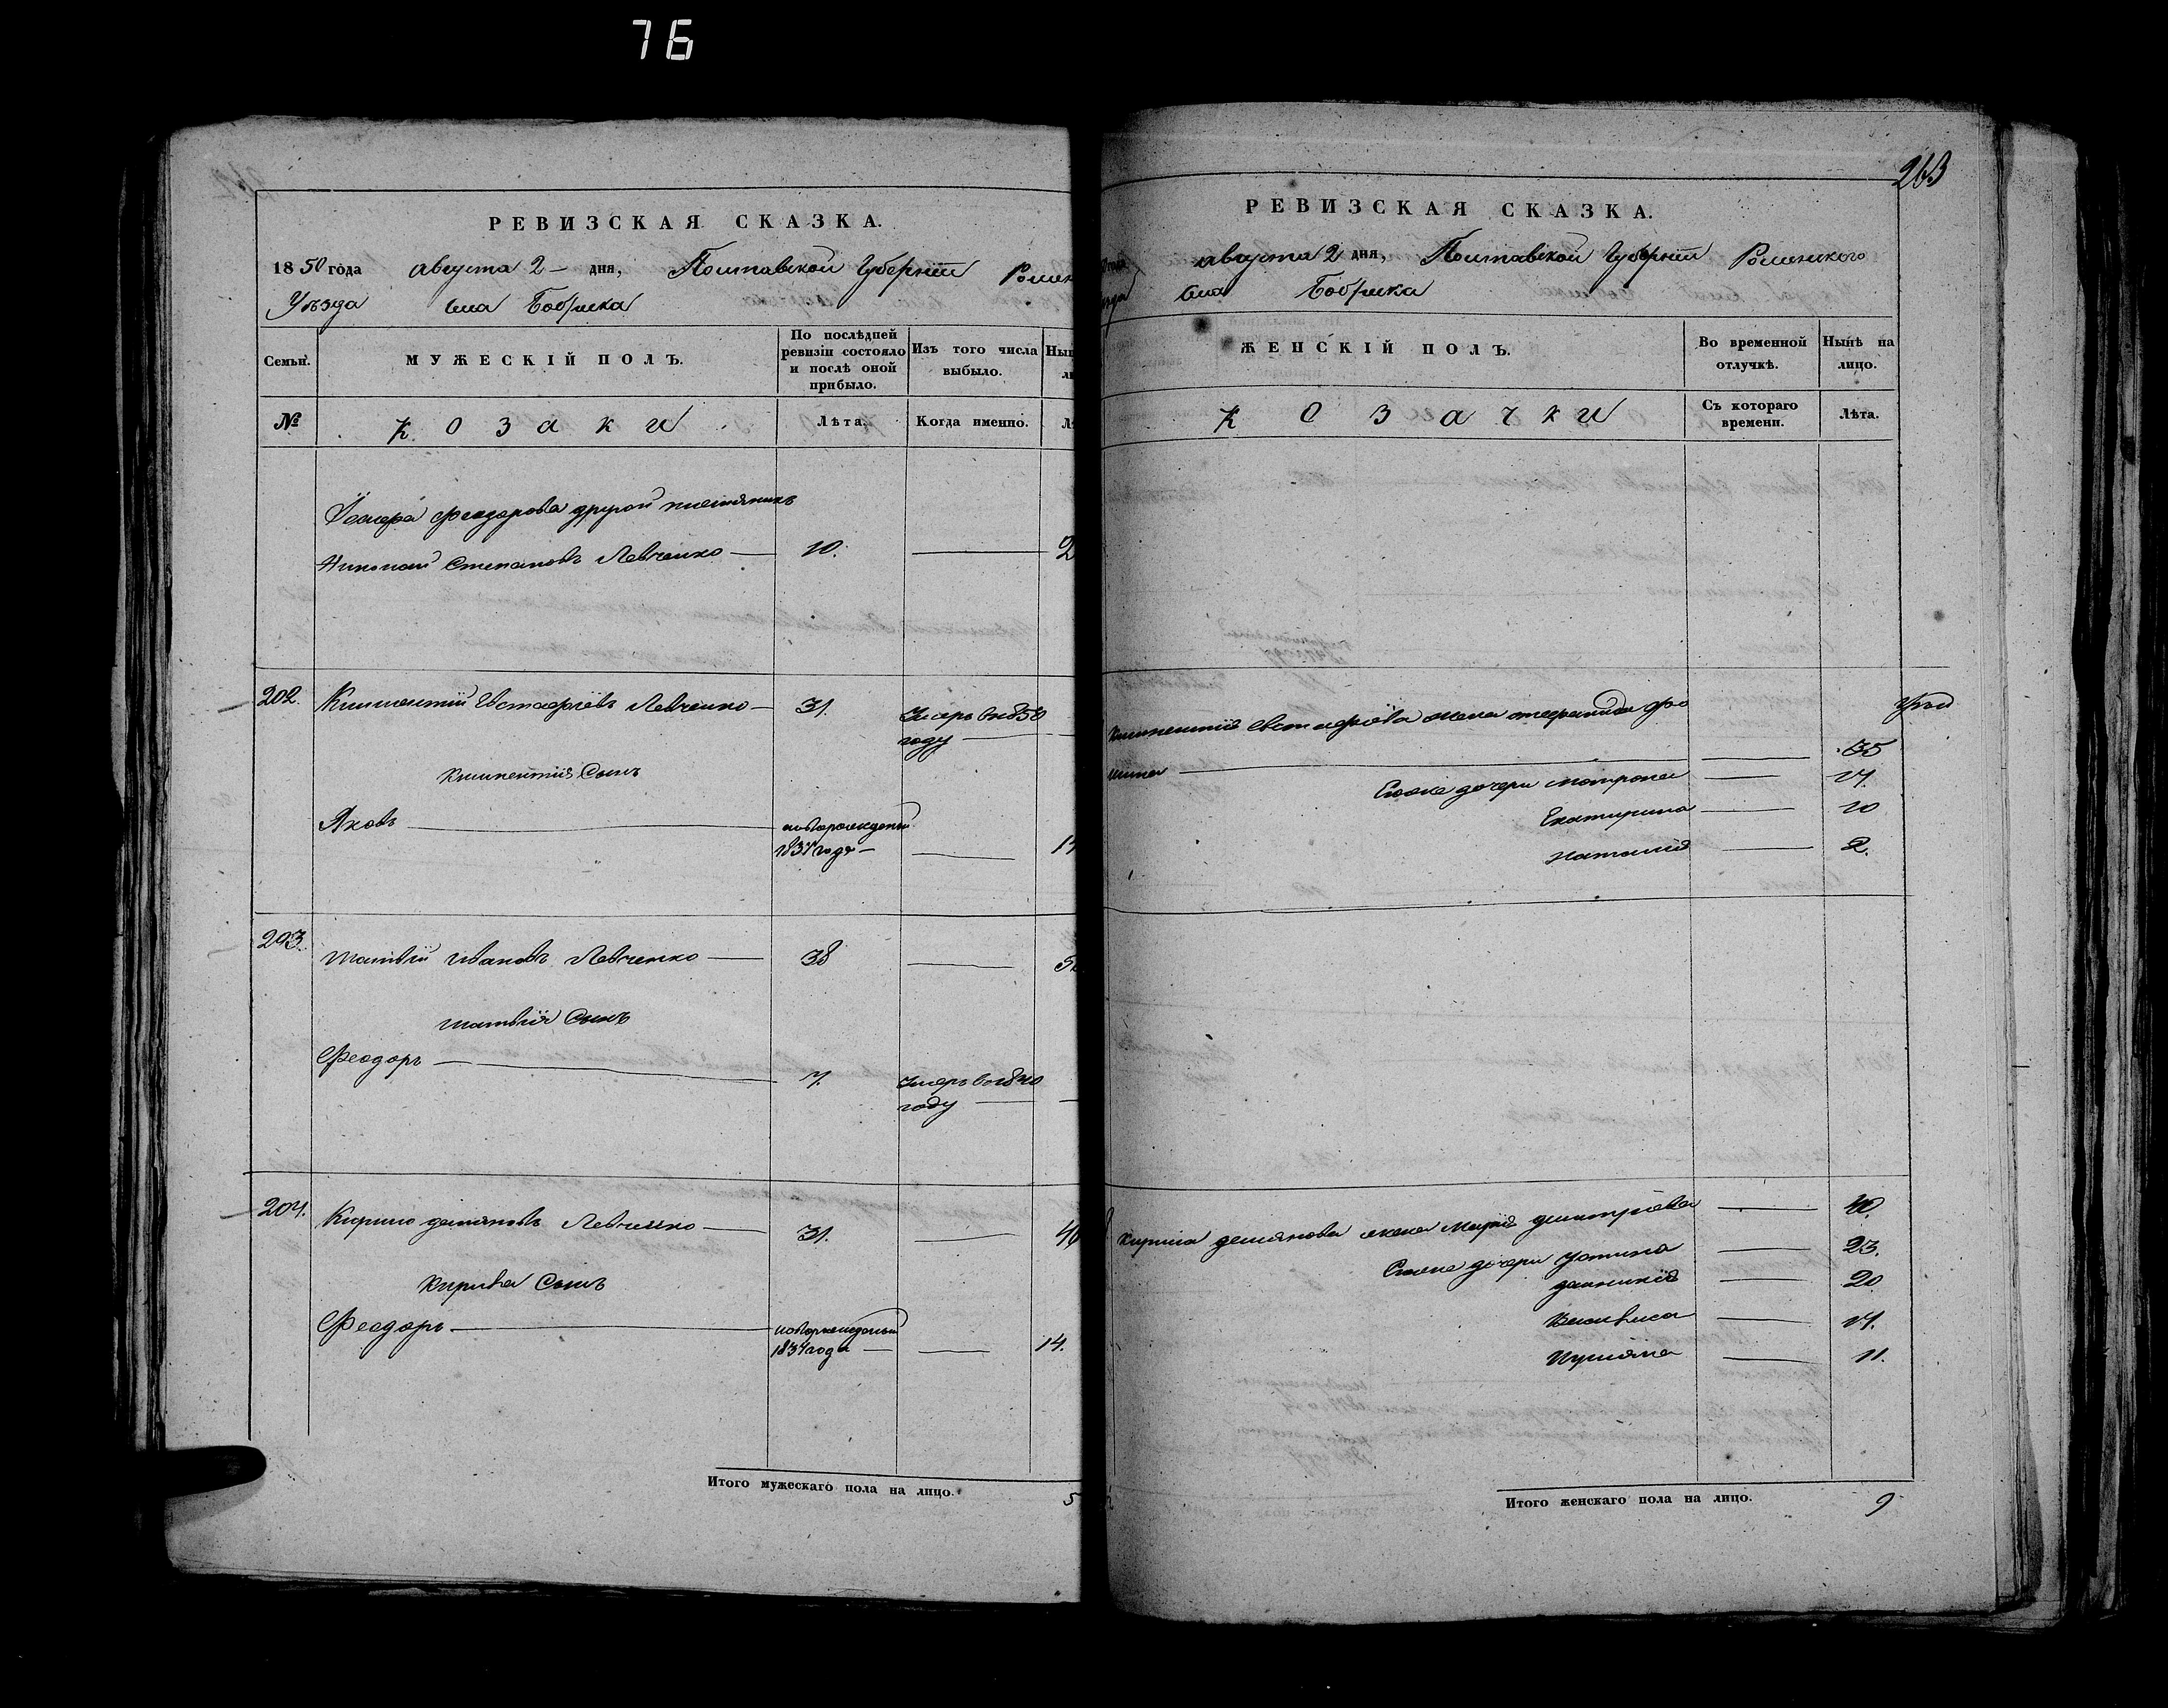 76
РЕВИЗСКАЯ СКАЗКА.
1850 года августа 2 дня, Полтавской Губернии Ромен
Уѣзда села Бобрика
Семьи. МУЖЕСКІЙ ПОЛЪ. По послѣдней ревизіи состояло и послѣ оной прибыло. Изъ того числа выбыло. Ны
№ козаки Лѣта. Когда именно. Лѣ
Феодорова другой племянникъ
Николай Степановъ Левченко 10. 2
202. Климентій Евстафіевъ Левченко 31. Умеръ въ 1850
году
Климентія Сынъ
Яковъ новорожденый
1834 года 1
203. Матвѣй Ивановъ Левченко 38 5
Матвѣя Сынъ
Феодоръ 7. Умеръ въ 1840
году
204. Кирило Демяновъ Левченко 31. 46
Кирила Сынъ
Феодоръ новорожденый
1834 года 14.
Итого мужескаго пола на лицо. 5
263
РЕВИЗСКАЯ СКАЗКА.
августа 2 дня, Полтавской Губернии Роменского
села Бобрика
ЖЕНСКІЙ ПОЛЪ. Во временной отлучкѣ. Нынѣ на лицо.
козачки Съ котораго времени. Лѣта.
Климентія Евстафіева жена
35
Его же дочери Матрона 14.
Екатирина 10
Наталія 2.
Кирила Демянова жена Марія Дмитріева 40.
Его же дочери Устина 23.
20
Васылиса 14.
11.
Итого женскаго пола на лицо. 9